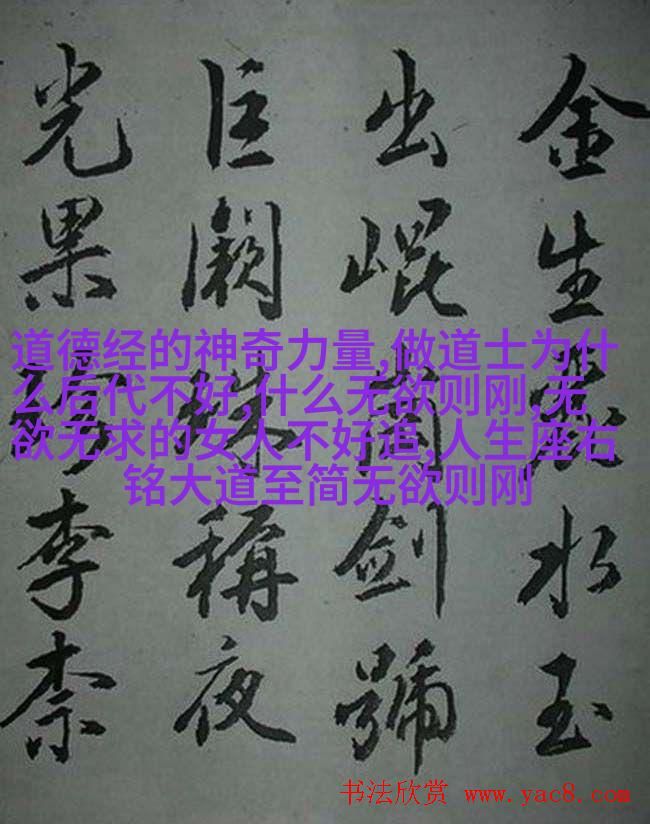 金生麗水玉
出崐岡劍號
巨闕珠稱夜
光果珍李柰
道德经的神奇力量,做道士为什
么后代不好,什么无欲则刚,无
欲无求的女人不好追,人生座右
铭大道至简无欲则刚
书法欣赏 www.yac8.com